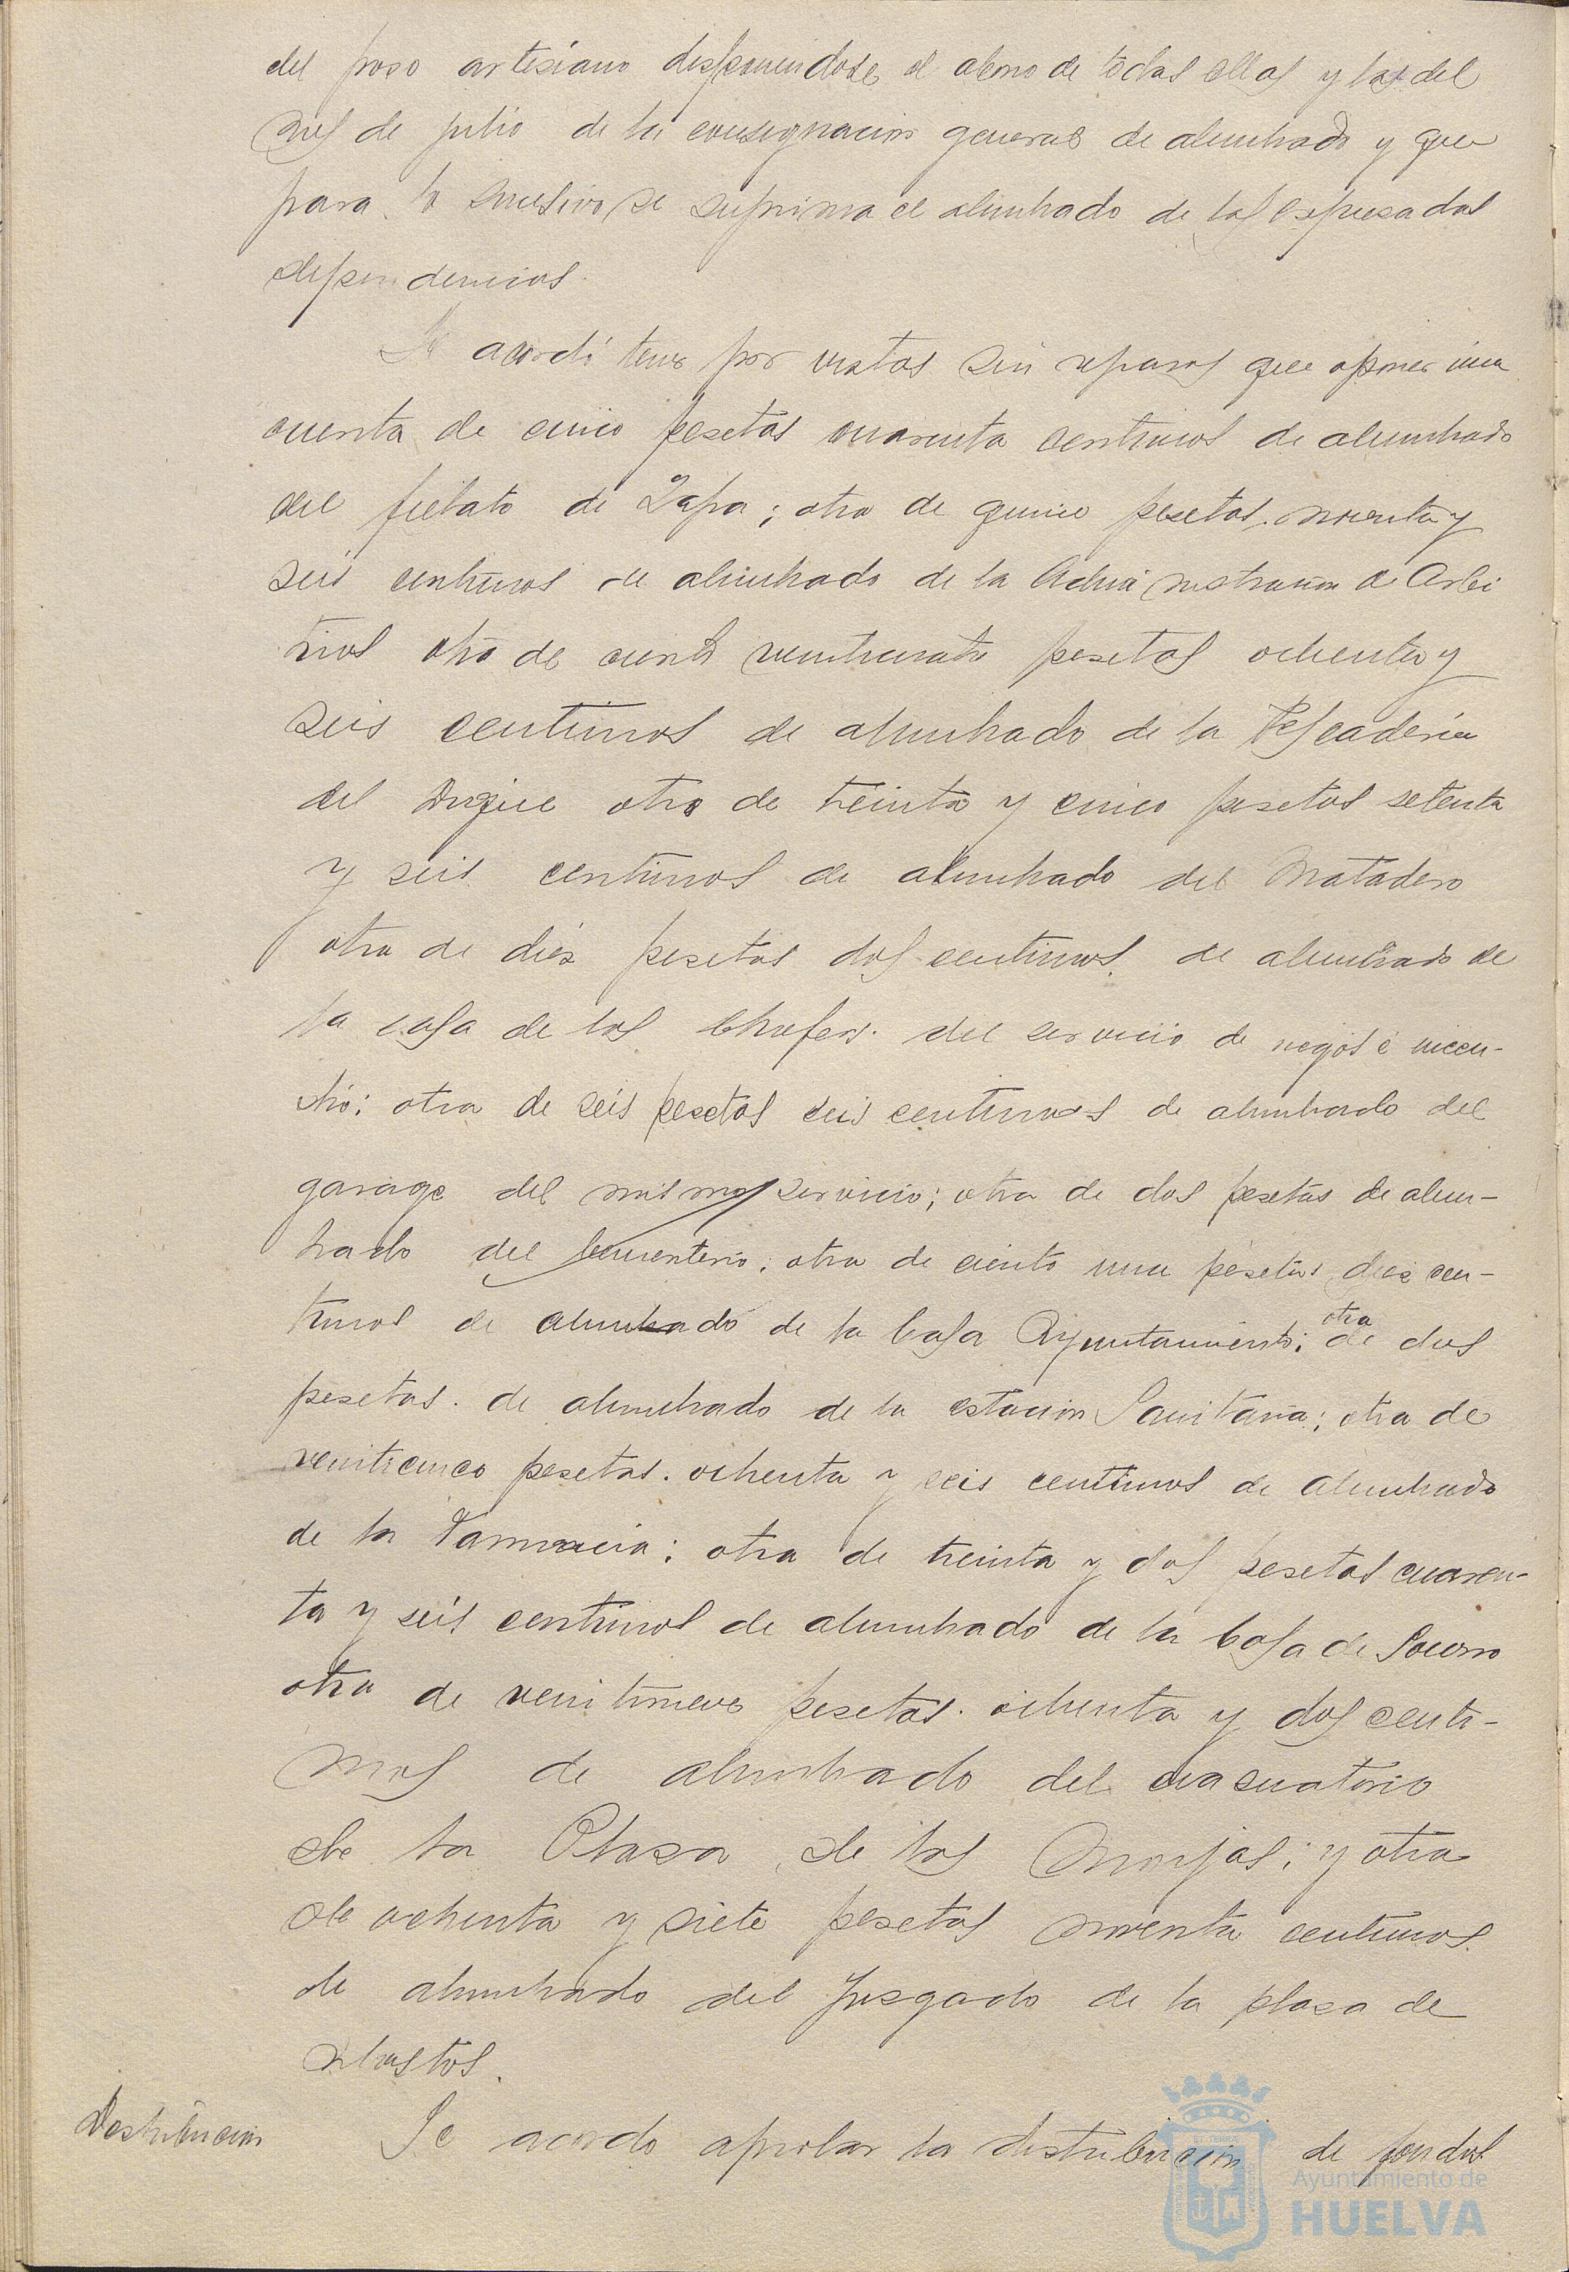 del poso artesiano desponiendose el abono de todas ellas y las del
mes de julio de la consignacion general de alumbrado y que
para lo sucesivo se suprima el alumbrado de las espresadas
dependencias.
Se acordó tener por vistas sin reparos que oponer una
cuenta de cinco pesetas cuarenta centimos de alumbrado
del fielato de Zafra; otra de quince pesetas noventa y
seis centimos de alumbrado de la Administracion de Arbi
trios otra de ciento veinticuatro pesetas ochenta y
seis centimos de alumbrado de la Pescaderia
del Duque otra de treinta y cinco pesetas setenta
y seis centimos de alumbrado del Matadero
otra de diez pesetas dos centimos de alumbrado de
la casa de los Chofers del servicio de riegos é incen-
dio; otra de seis pesetas seis centimos de alumbrado del
garage del mismo servicio; otra de dos pesetas de alum-
brado del Cementerio; otra de ciento una pesetas diez cen-
timos de alumbrado de la Casa Ayuntamiento; otra de dos
pesetas de alumbrado de la estacion Sanitaria; otra de
veinticinco pesetas ochenta y seis centimos de alumbrado
de la Farmacia; otra de treinta y dos pesetas cuaren-
ta y seis centimos de alumbrado de la Casa de Socorro
otra de veintinueve pesetas ochenta y dos centi-
mos de alumbrado del evacuatorio
de la Plasa de las Monjas; y otra
de ochenta y siete pesetas noventa centimos
de alumbrado del Jusgado de la plasa de
abastos.
Destribucion
Se acordo aprobar la destribucion de fondos
Ayuntamiento de
HUELVA